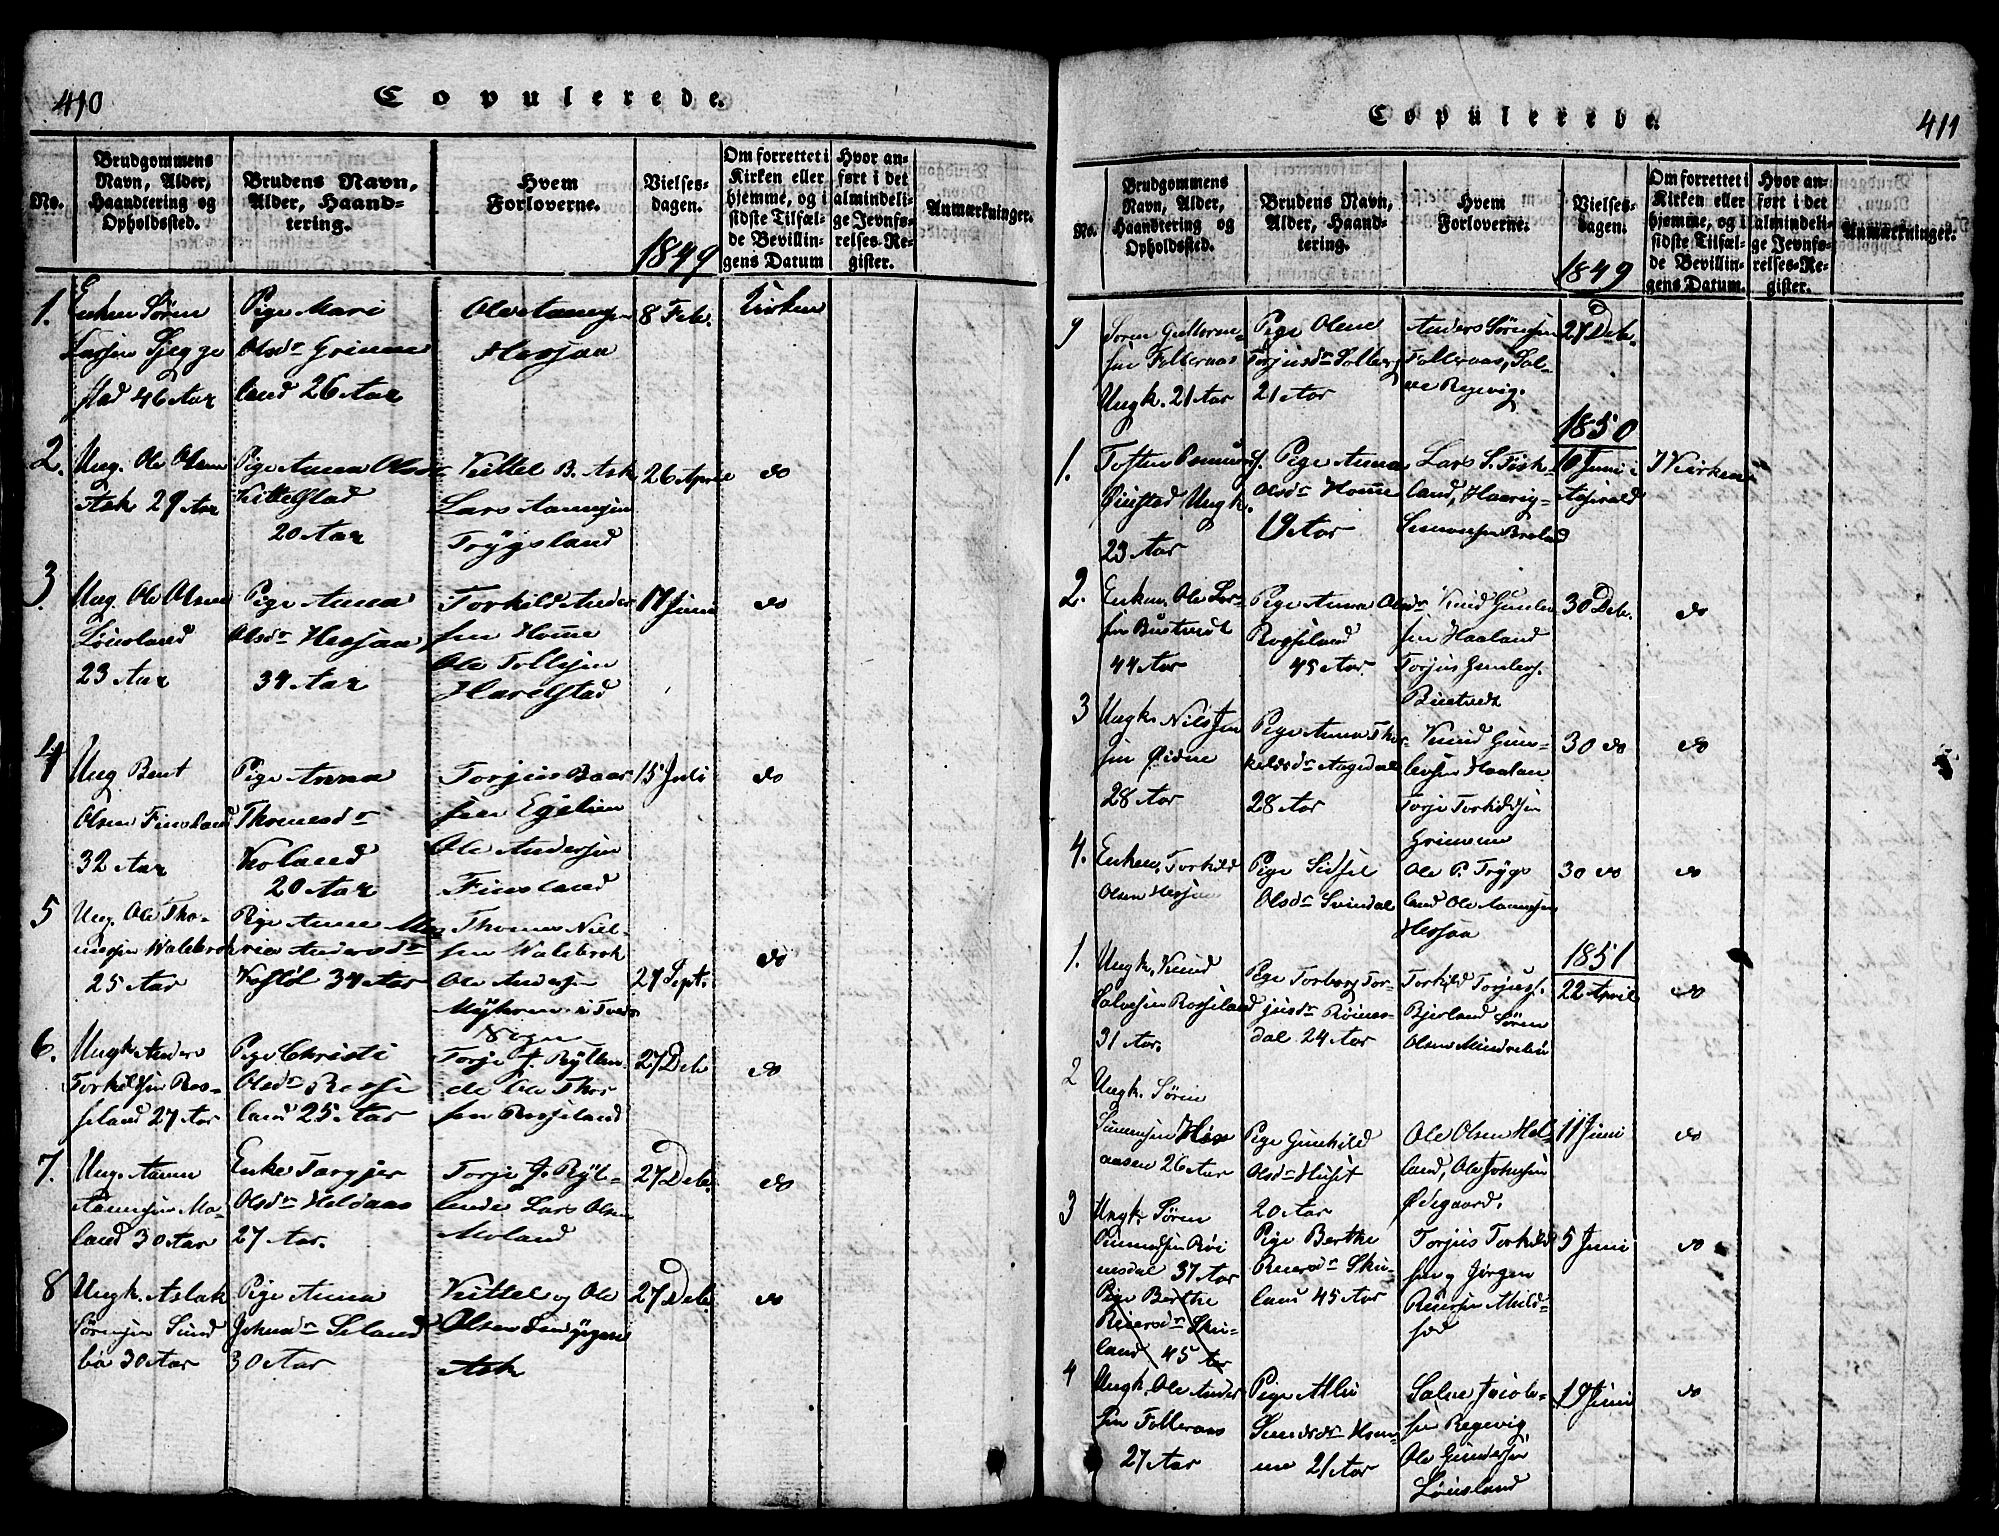 410
Copulerede.
No.
Brudgommens
Navn, Alder,
Haandtering og
Opholdssted.
Brudens Navn,
Alder, Haand-
tering.
Hvem
Forloverne.
Vielses-
dagen.
1849
Om forrettet i
Kirken eller
hjemme, og i
sidste Tilfæl-
de Bevillin-
gens Datum
Hvor an-
ført i det
almindeli-
ge Jevnfø-
relses-Re-
gister.
Anmærkninger.
1.
Enkem Søren
Larsen
stad 46 Aar
Pige Mari
Olsdr Grimme
land 26 Aar
Ole Aamsen
Hessaa
8 Feb.
Kirken
2.
Ung. Ole Olsen
Ask 29 Aar
Pige Anna Olsdr
Kittelstad
20 Aar
Kittel B. Ask
Lars Aamsen
Trygsland
26 April
do
3.
Ung. Ole Olsen
Løinsland
23 Aar
Pige Anna
Olsdr Hessaa
34 Aar
Torkild Ander
sen Homme
Ole Tollefsen
Harelstad
17 Juni
do
4
Ung Bent
Olsen Finsland
32 Aar
Pige Anna
Thomesdr
Koland
20 Aar
Torjus Baar
sen Egelien
Ole Andersen
Finsland
15 Juli
do
5
Ung. Ole Tho-
messen Walebrok
25 Aar
Pige Anne Ma
ria Andersdr
34 Aar
Thomes Niel-
sen Walebrok
Ole Andersen
Myhren i Tveds
Sogn
27 Sept.
do
6.
Ungk. Anders
Torkildsen Ros-
seland 27 Aar
Pige Christi
Olsdr Rosse
land 25 Aar
Torje J. Ryllen
de Ole Thor
sen Rosseland
27 Deb
do
7.
Ung. Aanen
Aanensen Mo-
land 30 Aar
Enke Targjer
Olsdr Heldaas
27 Aar.
Torje J. Ryl-
lende Lars Olsen
Moland
27 Deb.
do
8
Ungk. Aslak
Sørensen Sund
bø 30 Aar
Pige Anna
Johnsdr Seland
30 Aar
Kittel og Ole
Olsen
Ask
27 Deb
do
Copulerede.
411
No.
Brudgommens
Navn, Alder,
Haandtering og
Opholdssted.
Brudens Navn,
Alder, Haand-
tering.
Hvem
Forloverne.
Vielses-
dagen.
1849
Om forrettet i
Kirken eller
hjemme, og i
sidste Tilfæl-
de Bevillin-
gens Datum.
Hvor an-
ført i det
almindeli-
ge Jevnfø-
relses-Re-
gister.
Anmærkninger.
9
Søren Guttorm-
sen Folleraas
Ungk. 21 Aar
Pige Olene
Torjusdr Solberg
21 Aar
Anders Sørensen
Folleraas, Sal-
ve Regevig.
27 Deb.
1850
1.
Øiestad Ungk.
23 Aar
Pige Anna
Olsdr Homme
19 Aar
Lars S. Fisk-
land,
Simonsen
10 Juni i
I Kirken
2.
Enkem. Ole Lar-
sen Bustvedt
44 Aar
Pige Anna Olsdr
Rosseland
45 Aar
Knud Gunles
sen Haaland
Torjus Gunlers.
Bustvedt
30 Deb.
do
3
Ungk. Nils Jen
sen Øidne
28 Aar
Pige Anna Thor-
kildsdr Aagedal
28 Aar
Knud Gun-
lersen Haalan
Torje Torkildsen
Grimme
30 do
do
4.
Enkem. Torkild
Olsen Hessaa
Pige Sidsel
Olsdr Svindal
Ole P. Trygs
land Ole Aamsen
Hessaa
30 do
do
1851
1.
Ungk. Knud
Salvesen Rosseland
31 Aar.
Pige Torborg Tor-
jusdr Røines-
dal 24 Aar
Torkild Torjuss.
Bjerland Søren
Olsen
22 April
do
2
Ungk. Søren
Simensen
aasen 26 Aar
Pige Gunhild
Olsdr Huset
20 Aar
Ole Olsen Hol-
land, Ole Johnsen
Ødegaard.
11 Juni
do
3
Ungk. Søren
Gunnuldsen Røi
nesdal 37 Aar
Pige Berthe
Reiersdr Sku-
land 45 Aar
Pige Berthe
Reiersdr Sku-
land 45 Aar
Torjus Torkild
sen og Jørgen
Reiersen
5 Juni
do
4
Ungk. Ole Ander
sen Folleraas
27 Aar
Pige Allis
Hom-
me 21 Aar
Salve Jacob-
sen Regevig
Ole Gundersen
Løinsland
19 Juni
do